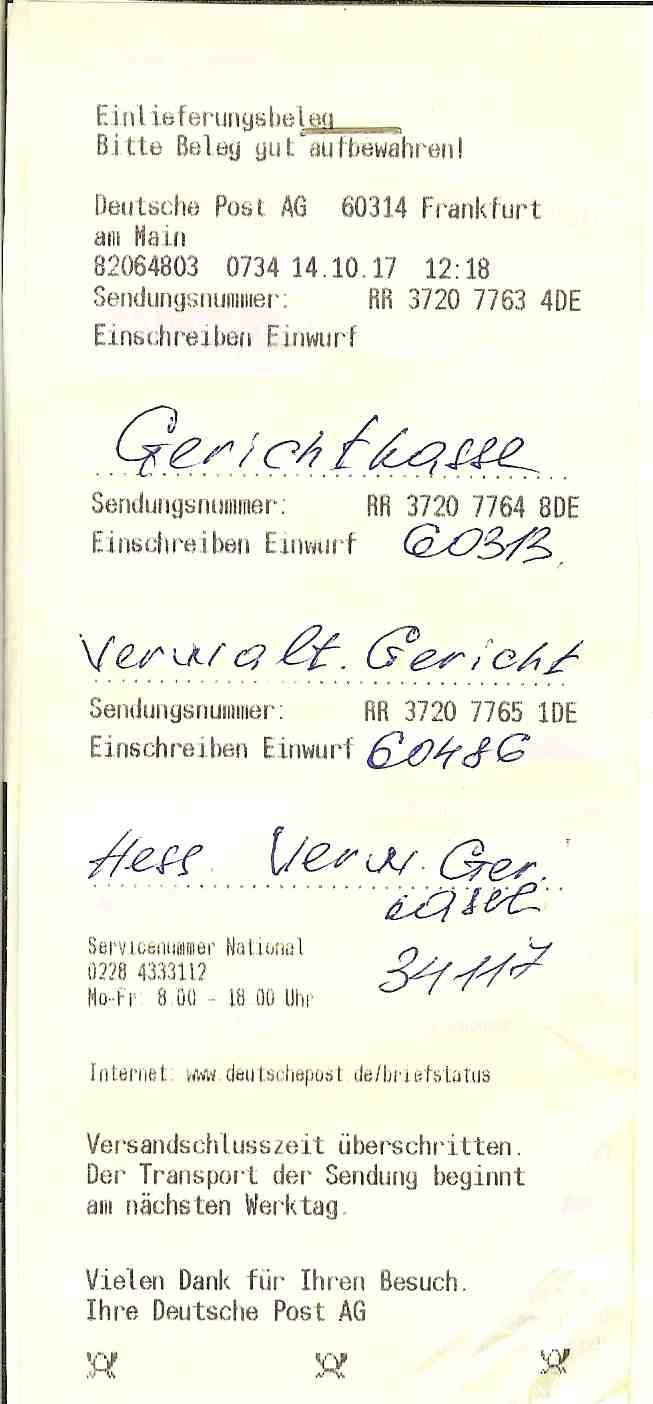 Einlieferungsbeleg
Bitte Beleg gut aufbewahren!
Deutsche Post AG 60314 Frankfurt
am Main
82064803 0734 14.10.17 12:18
Sendungsnummer: RR 3720 7763 4DE
Einschreiben Einwurf
Gerichtkasse
Sendungsnummer: RR 3720 7764 8DE
Einschreiben Einwurf 60313
Verwalt. Gericht
Sendungsnummer: RR 3720 7765 1DE
Einschreiben Einwurf 60486
Hess. Verw. Ger.
Servicenummer National
34117
0228 4333112
Mo-Fr: 8.00 - 18.00 Uhr
Internet: www.deutschepost.de/briefstatus
Versandschlusszeit überschritten.
Der Transport der Sendung beginnt
am nächsten Werktag.
Vielen Dank für Ihren Besuch.
Ihre Deutsche Post AG